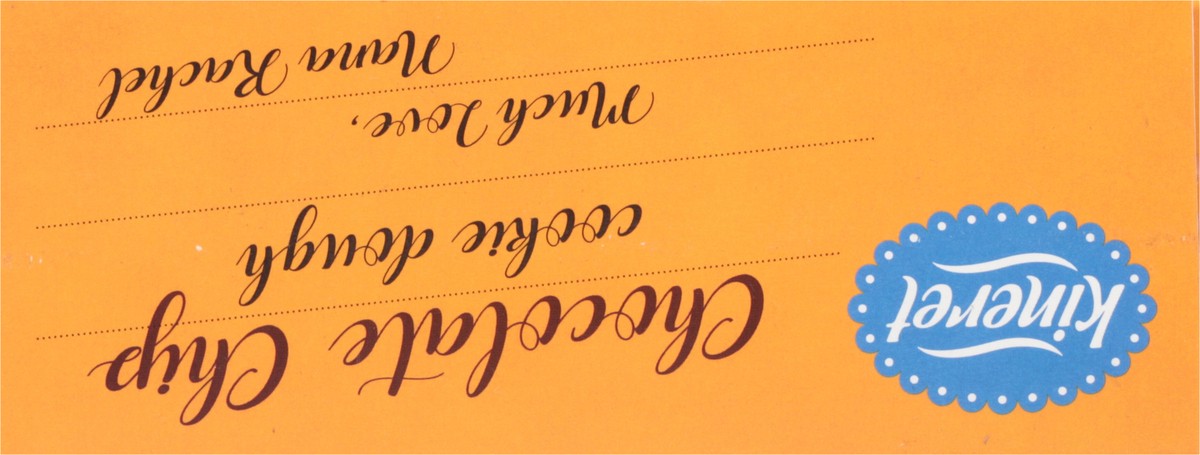 kineret
Chocolate Chip
cookie dough
Much Love,
Nana Rachel